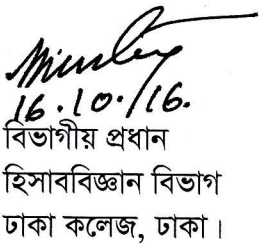 16.10.16.
বিভাগীয় প্রধান
হিসাববিজ্ঞান বিভাগ
ঢাকা কলেজ, ঢাকা।